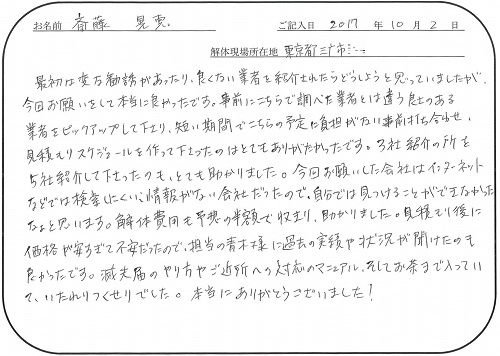 お名前 斎藤 晃恵 ご記入日 2017 年 10 月 2 日
解体現場所在地 東京都三鷹市
最初は変な勧誘があったり、良くない業者を紹介されたらどうしようと思っていましたが、
今回お願いをして本当に良かったです。事前にこちらで調べた業者とは違う良さのある
業者をピックアップして下さり、短い期間でこちらの予定に負担がない事前打ち合わせ、
見積もりスケジュールを作って下さったのはとてもありがたかったです。3社紹介の所を
5社紹介して下さったのも、とても助かりました。今回お願いした会社はインターネット
などでは検索しにくい、情報がない会社だったので、自分では見つけることができなかった
なぁと思います。解体費用も予想の半額で収まり、助かりました。見積もり後に
価格が安すぎて不安だったので、担当の青木様に過去の実績や状況が聞けたのも
良かったです。滅失届のやり方やご近所への対応のマニュアル、そしてお茶まで入ってい
て、いたれりつくせりでした。本当にありがとうございました!